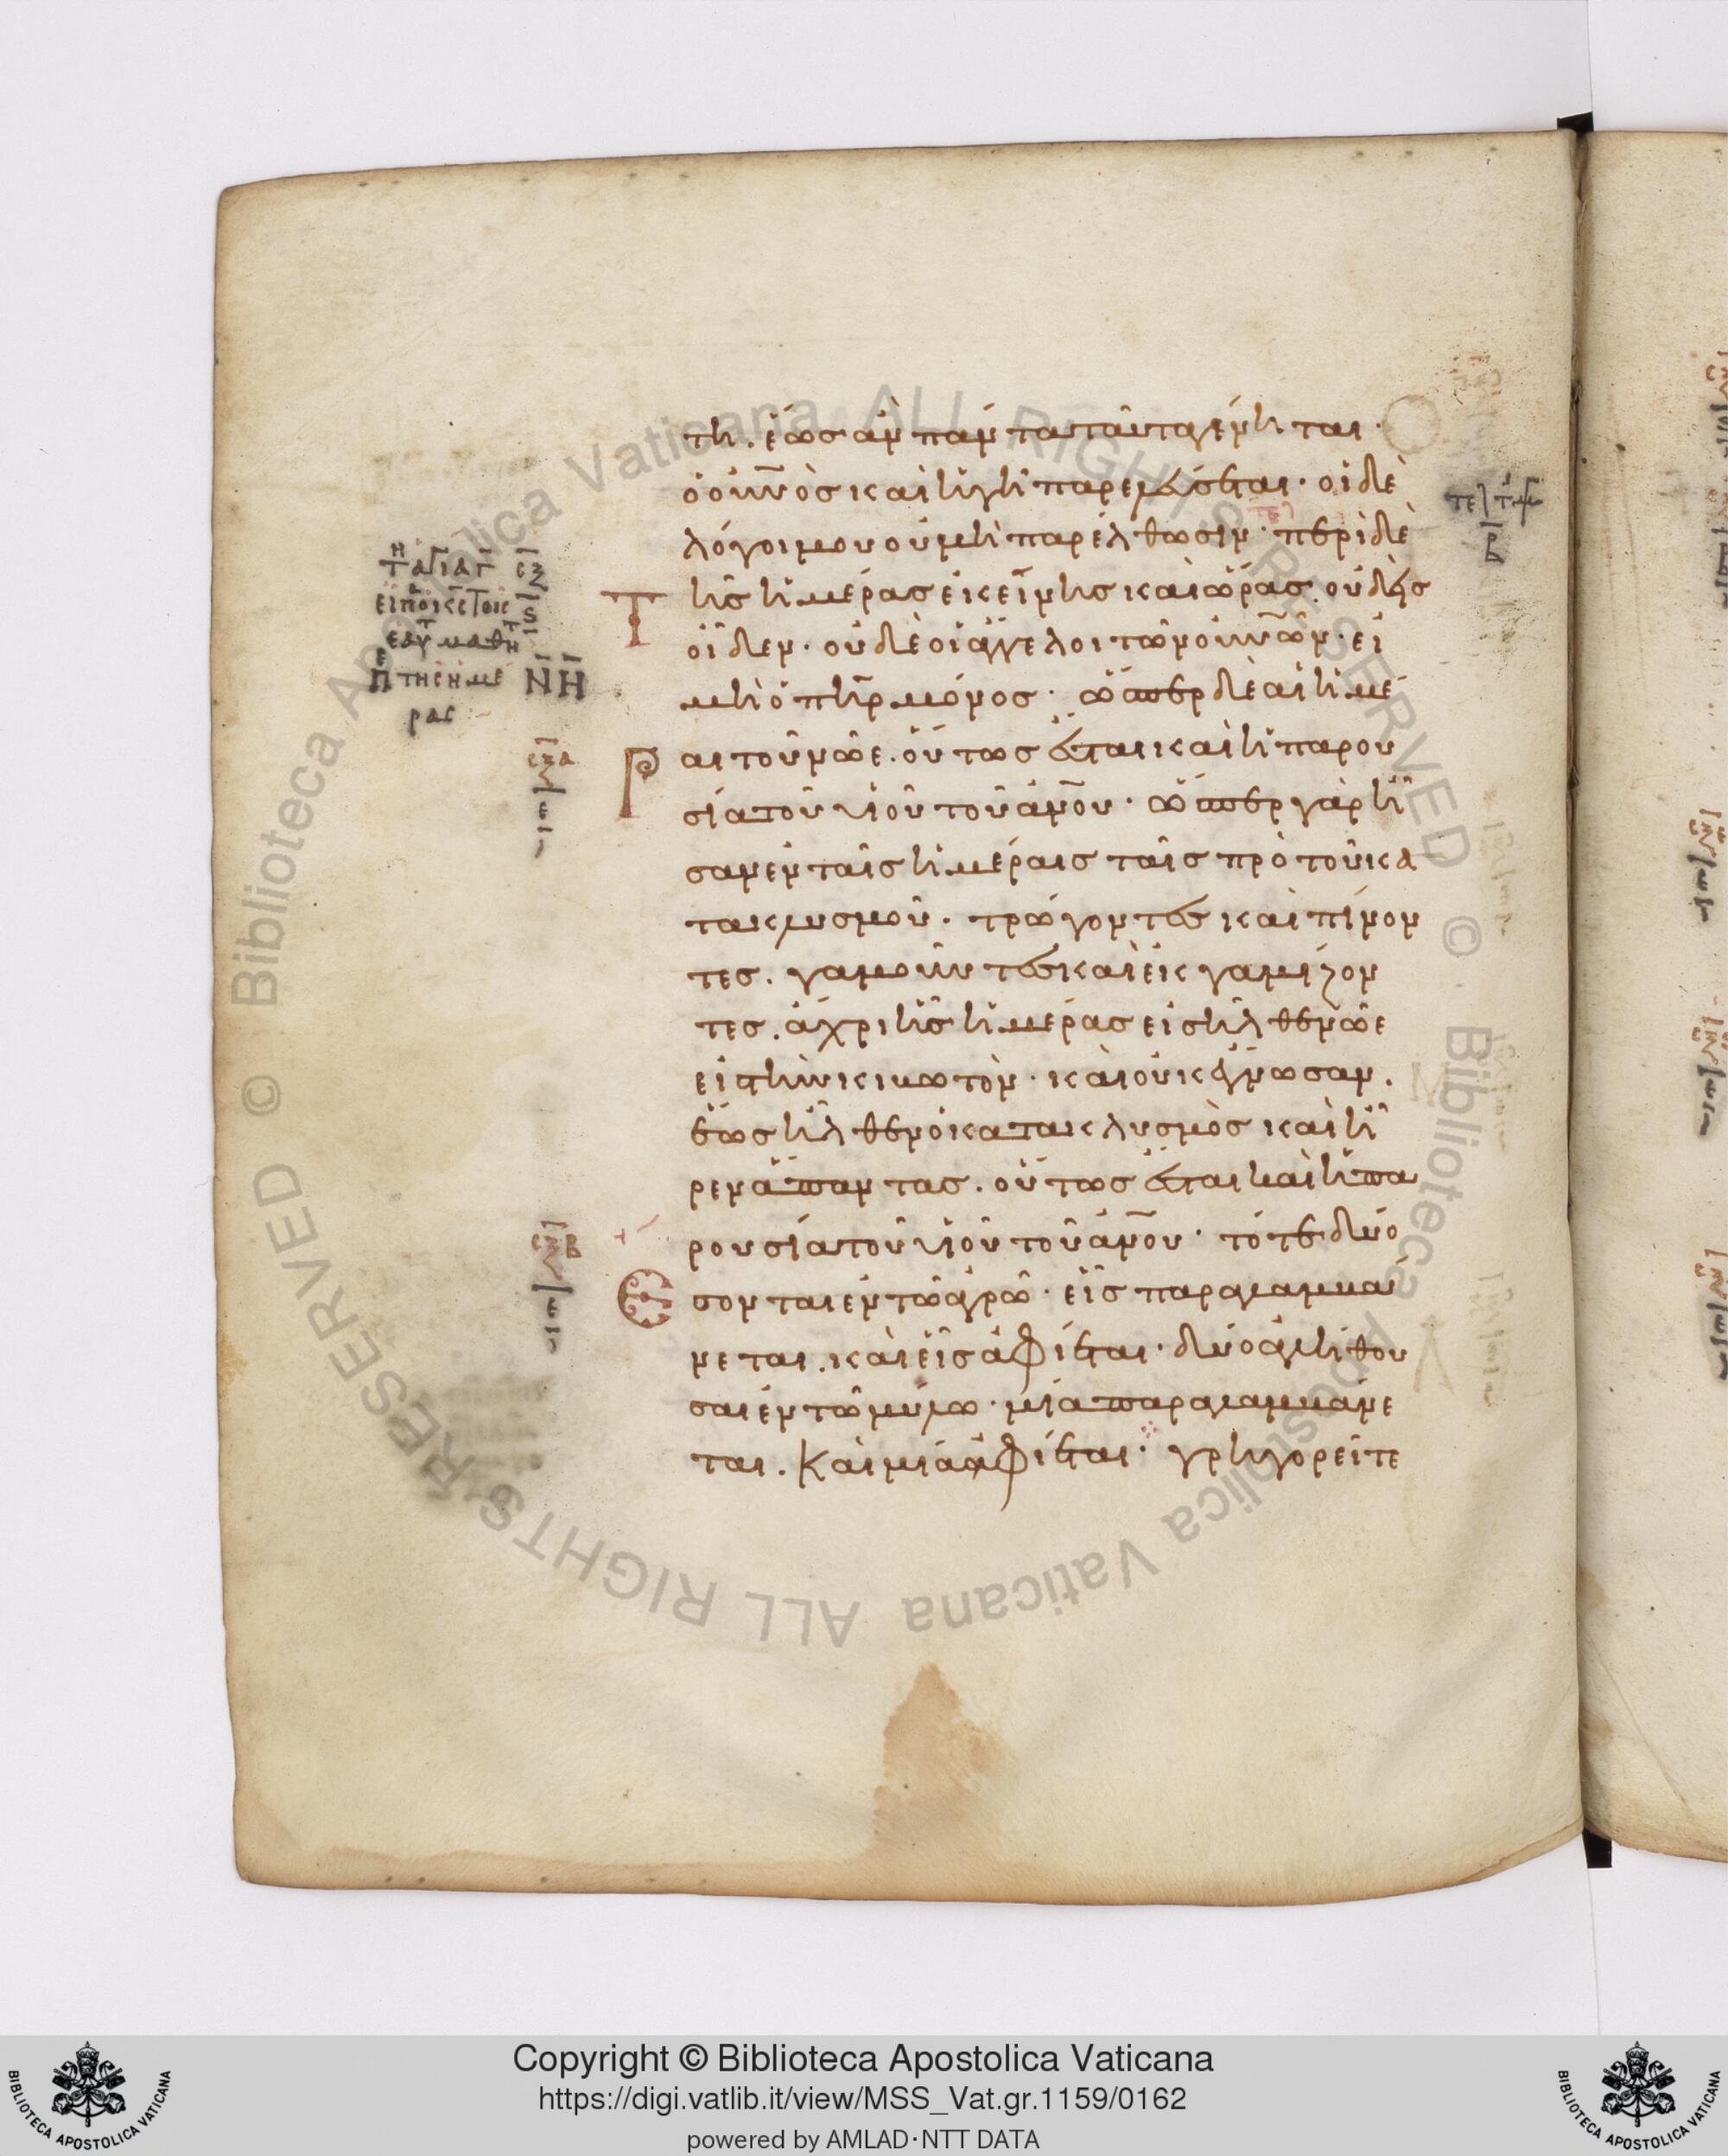 τη. ἕως ἂν πάντα ταῦτα γένηται·
ὁ οὐνὸς καὶ ἡ γῆ παρελεύσεται· οἱ δὲ
λόγοι μου οὐ μὴ παρέλθωσιν· περὶ δὲ
Τῆς ἡμέρας ἐκείνης καὶ ὥρας. οὐδεὶς
οἶδεν· οὐδὲ οἱ ἄγγελοι τῶν οὐνῶν· εἰ
μὴ ὁ πῆρ μόνος· ὥσπερ δὲ αἱ ἡμέ
Ραι τοῦ νῶε. οὕτως ἔσται καὶ ἡ παρου
σία τοῦ υἱοῦ τοῦ ἀνου· ὥσπερ γὰρ ἦ
σαν ἐν ταῖς ἡμέραις ταῖς πρὸ τοῦ κα
τακλυσμοῦ. τρώγοντες καὶ πίνον
τες. γαμοῦντες καὶ ἐκγαμίζον
τες. ἄχρι ἧς ἡμέρας εἰσῆλθεν νῶε
εἰς τὴν κιβωτόν· καὶ οὐκ ἔγνωσαν.
ἕως ἦλθεν ὁ κατακλυσμὸς καὶ ἦ
ρεν ἅπαντας. οὕτως ἔσται καὶ ἡ πα
ρουσία τοῦ υἱοῦ τοῦ ἀνου· τότε δύο
Εσονται ἐν τῶ ἀγρῶ· εἷς παραλαμβά
νεται. καὶ εἷς ἀφίεται· δύο ἀλήθου
σαι ἐν τῶ μύλω· μία παραλαμβάνε
ται. Καὶ μία ἀφίεται· γρηγορεῖτε
τῇ ἁγίᾳ γ
ΝΗ
ρας
σξα
σξβ
Copyright © Biblioteca Apostolica Vaticana
https://digi.vatlib.it/view/MSS_Vat.gr.1159/0162
powered by AMLAD·NTT DATA
BIBLIOTECA APOSTOLICA VATICANA
BIBLIOTECA APOSTOLICA VATICANA
Biblioteca Apostolica Vaticana ALL RIGHTS RESERVED ©
Biblioteca Apostolica Vaticana ALL RIGHTS RESERVED ©